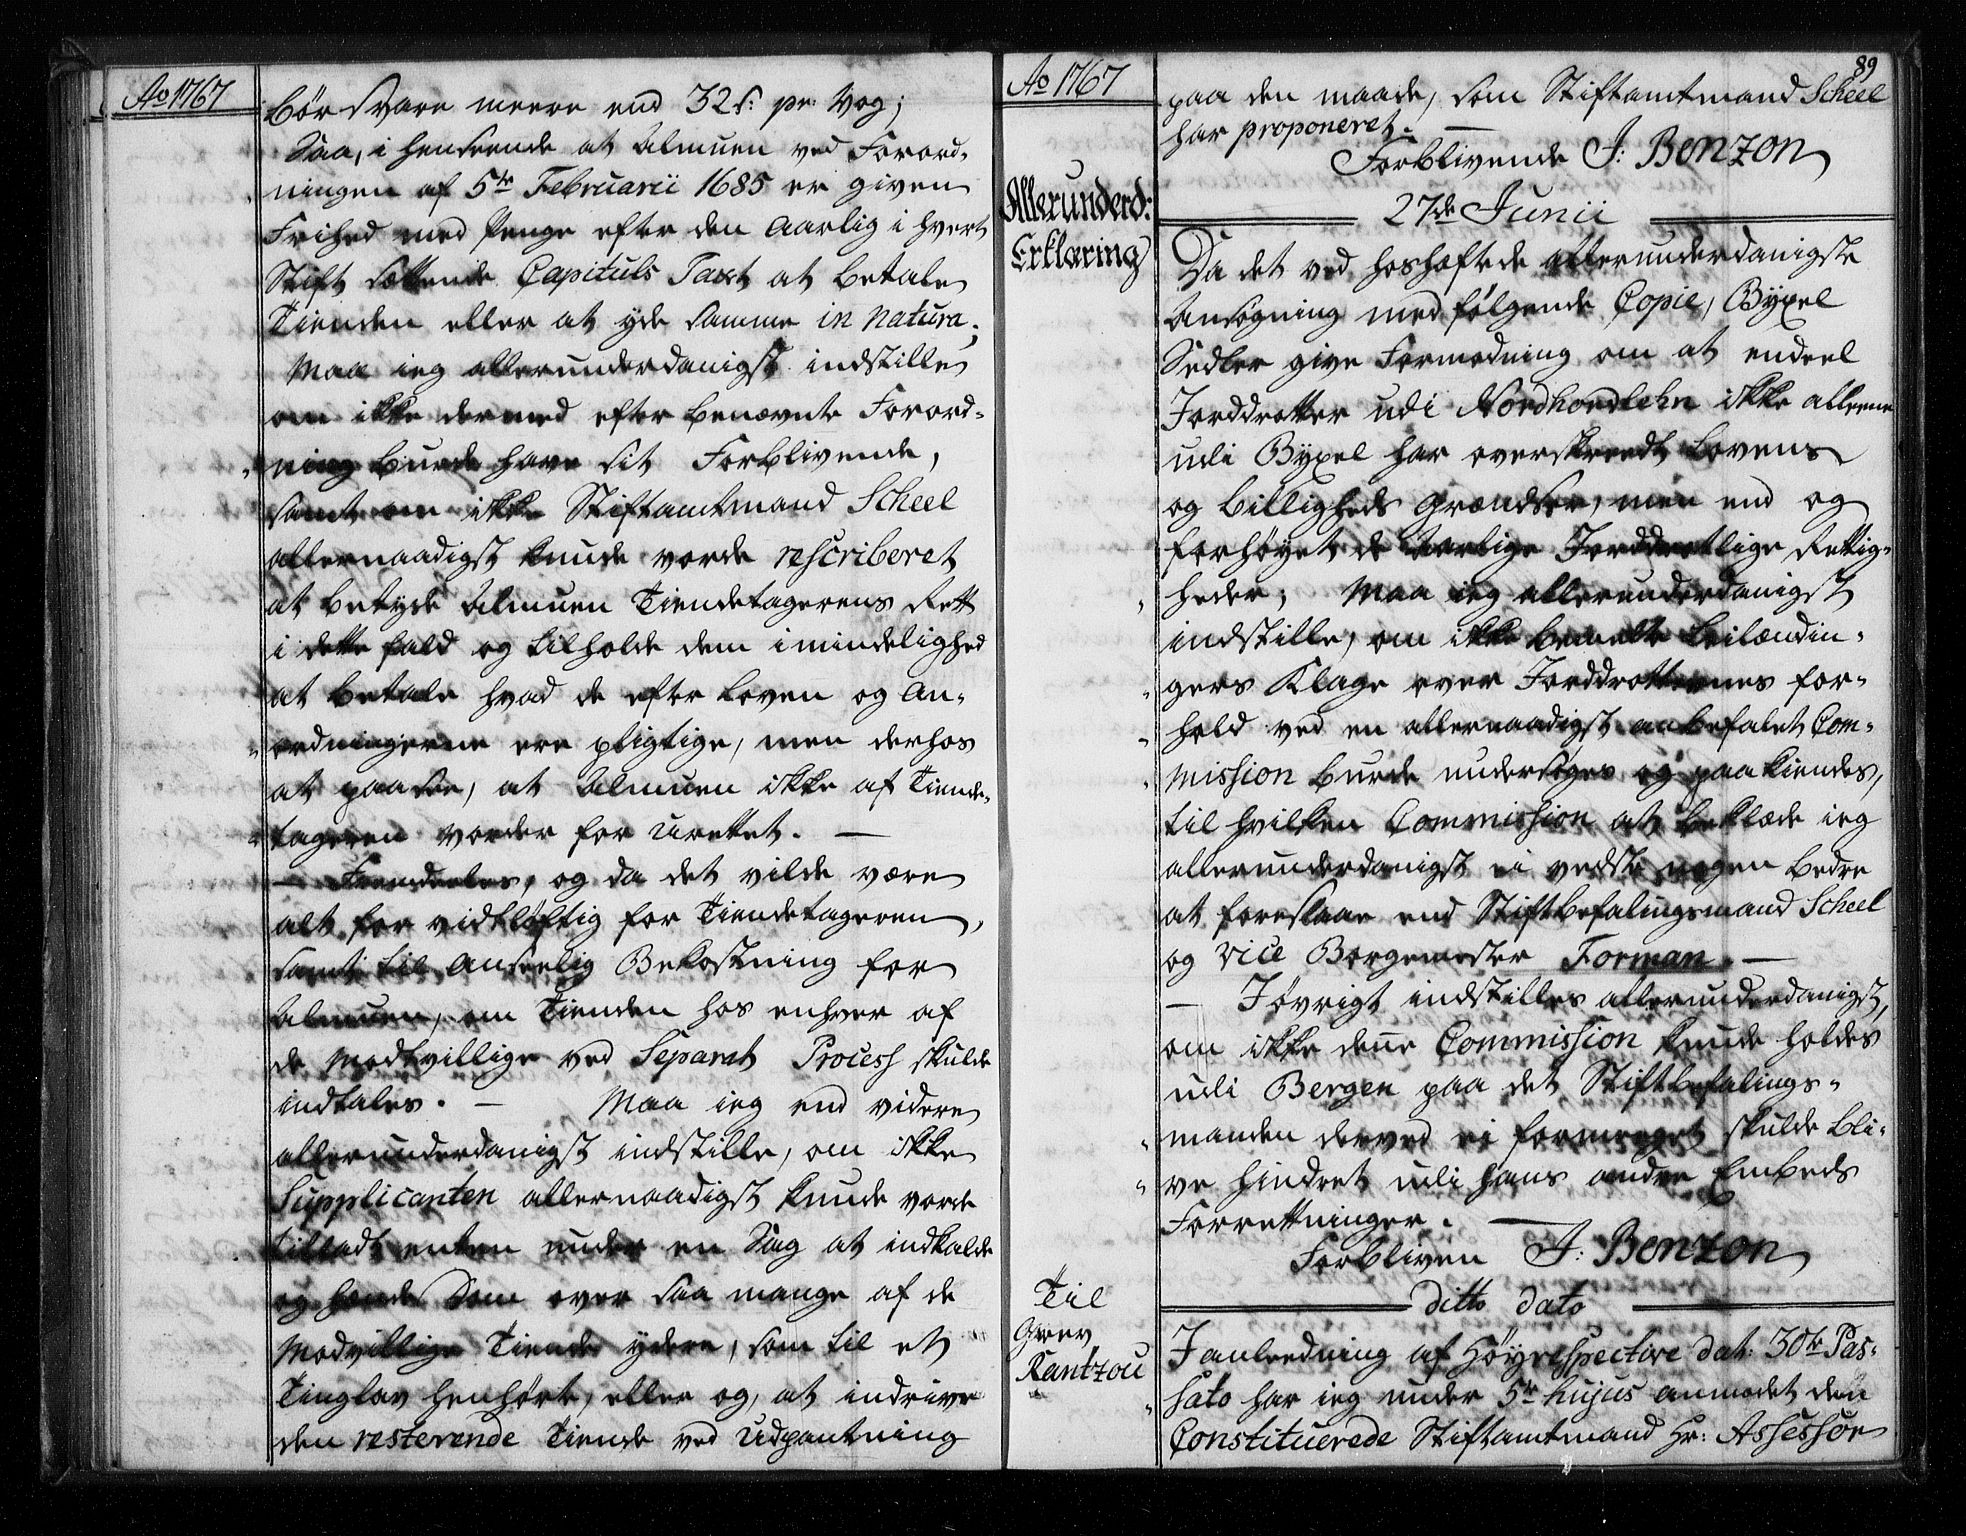 Ao 1767
bör svare meere end 32 s: pr: Vog;
Saa, i henseende at Almuen ved Forord-
ningen af 5te Februarii 1685 er given
Frihed med Penge efter den aarlig i hvert
Stift sættende Capituls Taxt at betale
Tienden eller at yde samme in natura;
Maa ieg allerunderdanigst indstille,
om ikke dermed efter benævnte Forord-
ning burde have sit Forblivende,
samt om ikke Stiftamtmand Scheel
allernaadigst kunde vorde rescriberet
at betyde Almuen Tiendetagerens Rett
i dette fald og tilholde dem i mindelighed
at betale hvad de efter Loven og An-
ordningerne ere pligtige, men derhos
at paasee, at Almuen ikke af Tiende-
tageren vorder for urettet. —
— Fremdeeles, og da det vilde være
alt for vidtløftig for Tiendetageren,
samt til anseelig Bekostning for
Almuen, om Tienden hos enhver af
de modtvillige ved Separat Process skulde
indtales. — Maa ieg end videre
allerunderdanigst indstille, om ikke
Supplicanten allernaadigst kunde vorde
tilladt enten under en Sag at indkalde
og hænde Dom over saa mange af de
Modvillige Tiende ydere, som til et
Tinglav henhörte, eller og, at indrive
den resterende Tiende ved Udpantning
Ao 1767
89
paa den maade, som Stiftamtmand Scheel
har proponeret. —
Forblivende J: Benzon
27de Junii
Allerunderd:
Erklæring
Da det ved hoshæftede allerunderdanigste
Ansøgning med følgende Copie, Bÿxel
Sedler give Formodning om at endeel
Jorddrotter udi Nordhordlehn ikke alleene
udi Bÿxel har overskreedt Lovens
og billigheds Grændser, men end og
forhøÿet de Aarlige Jorddrotlige Rettig-
heder; Maa ieg allerunderdanigst
indstille, om ikke bemelte Leilændin-
gers Klage over Jorddrotternes for-
hold ved en allernaadigst anbefalet Com-
mission burde undersöges og paakiendes,
til hvilken Commission at beklæde ieg
allerunderdanigst ei vedste nogen bedre
at foreslaae end Stiftbefalingsmand Scheel
og vice Borgemester Forman. —
— Jøvrigt indstilles allerunderdanigst,
om ikke denne Commission kunde holdes
udi Bergen paa det Stiftbefalings-
manden derved ei formeget skulde bli-
ve hindret udi hans andre Embeds
Forrettninger. —
Forbliven J: Benzon
ditto dato
Til
Grev
Rantzou
J anleedning af Höyrespective dat: 30te Pas-
sato har ieg under 5te hujus anmodet den
Constituerede Stiftamtmand Hr: Assessor